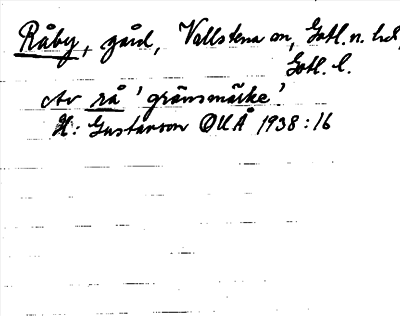 Råby, gård, Vallstena sn, Gotl. n. hd,
Gotl. l.
Av rå 'gränsmärke'.
H: Gustavson OUÅ 1938:16